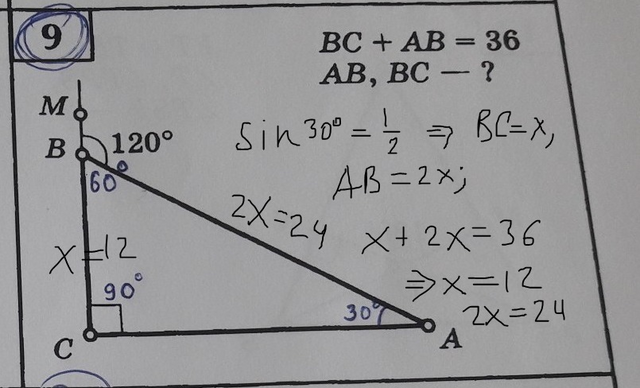 9
BC + AB = 36
AB, BC — ?
M
B
120°
60°
sin 30° = 1/2 ⇒ BC=x,
AB = 2x;
2x=24
x + 2x = 36
x=12
⇒ x = 12
90°
30°
2x = 24
C
A